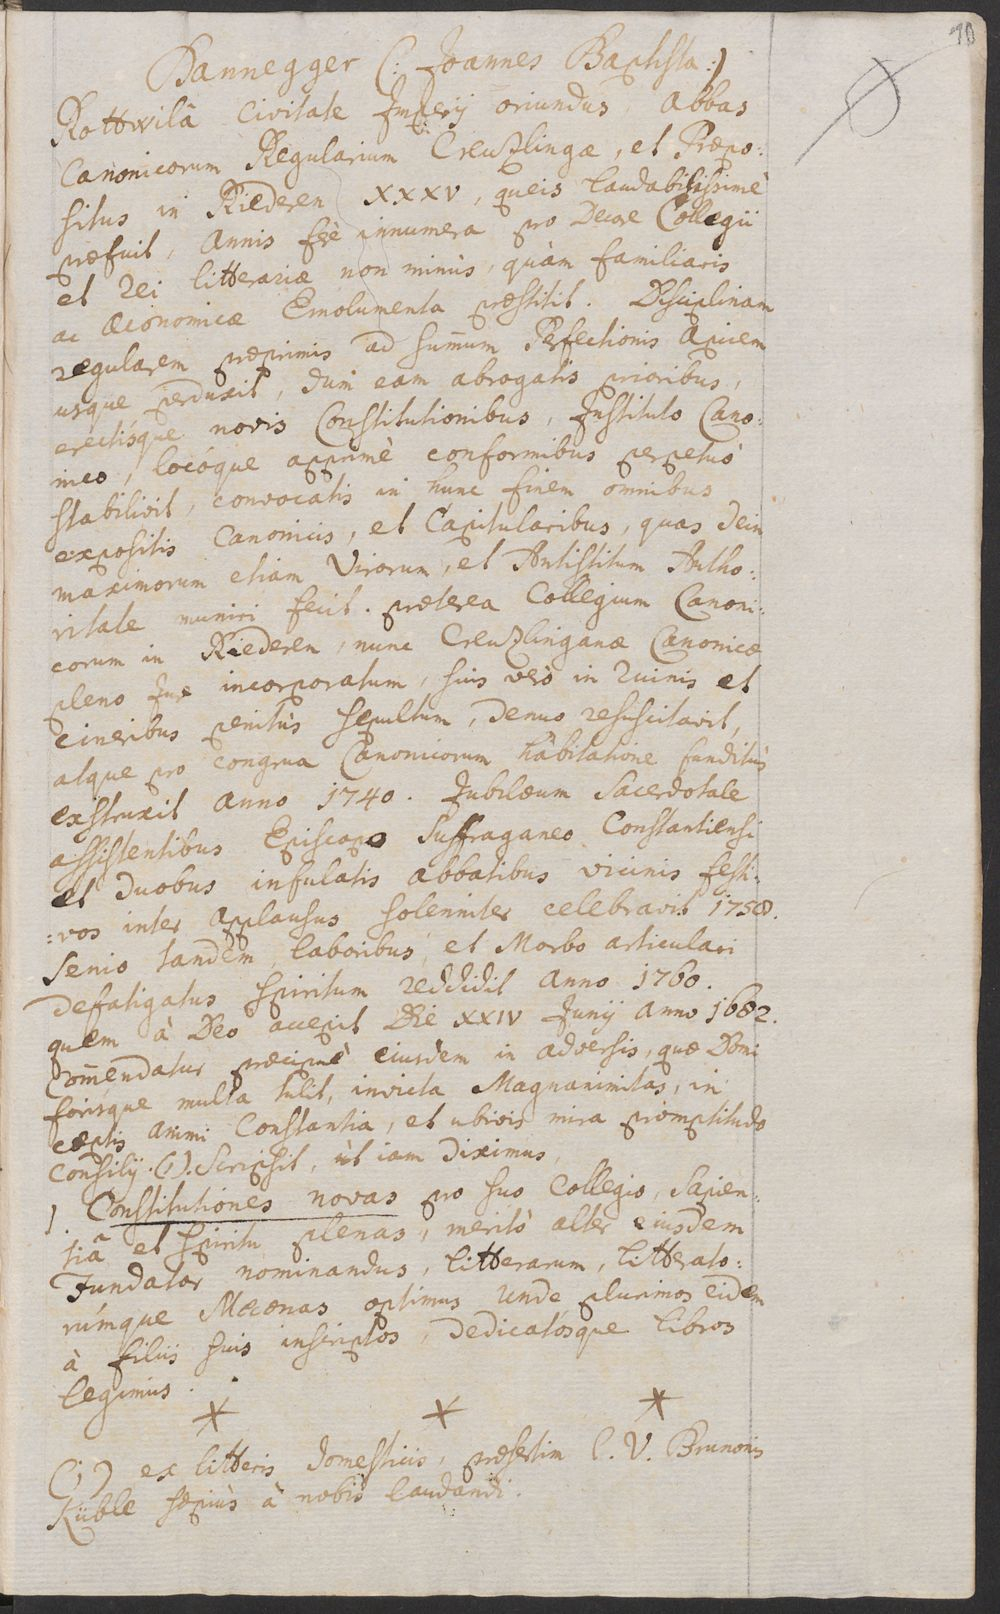 10
Dannegger (: Joannes Baptista :)
Rottwilâ Civitate Imperij oriundus Abbas
Canonicorum Regularium Creuzlingæ, et Præpo:
situs in Riederen XXXV, queis laudabilissimè
præfuit, Annis ferè innumera pro Decore Collegii
et Rei litterariæ non minùs, quàm familiaris
ac œconomicæ Emolumenta præstitit. Disciplinam
regularem præprimis ad sum̃um Perfectionis Apicem
usque perduxit, dum eam abrogatis prioribus,
erectísque novis Constitutionibus, Instituto Cano:
nico, locóque apprimè conformibus perpetuò
stabilivit, convocatis in hunc finem omnibus
expositis Canonicis, et Capitularibus, quas dein
maximorum etiam Virorum, et Antistitum Autho:
ritate muniri fecit. præterea Collegium Canoni:
corum in Riederen, nunc Creuzlinganæ Canonicæ
pleno Jure incorporatum, suis verò in ruinis et
cineribus penitùs sepultum, denuo resuscitavit,
atque pro congrua Canonicorum habitatione funditùs
exstruxit Anno 1740. Jubilæum Sacerdotale
assistentibus Episcopo Suffraganeo Constantiensi
et duobus infulatis abbatibus vicinis festi:
:vos inter Applausus solenniter celebravit 1758.
Senio tandem, laboribus, et Morbo articulari
defatigatus Spiritum reddidit Anno 1760.
quem à Deo accepit Die XXIV Junij Anno 1682.
Com̃endatur præcipuè eiusdem in adversis, quæ Domi
forisque multa tulit, invicta Magnanimitas, in
cæptis animi Constantia, et ubivis mira promptitudo
Consilij. (1). Scripsit, ùt iam diximus,
1. Constitutiones novas pro suo Collegio, Sapien:
tiâ et Spiritu plenas, meritò alter eiusdem
Fundator nominandus, litterarum, litterato:
rúmque Mecænas optimus unde plurimos eidem
à filiis suis inscriptos, dedicatosque libros
legimus.
* * *
(1) ex litteris domesticis, præsertim C. V. Brunonis
Küble sæpiùs à nobis laudandi.